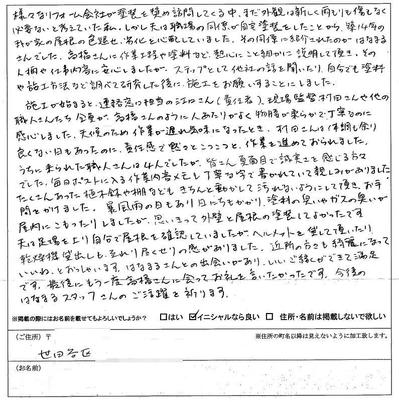 様々なリフォーム会社が塗装を勧め訪問してくる中、まだ外観は新しく同じりも傷もなく
必要ないと考えていた私。しかし夫は職場の同僚が自宅塗装をしたことから、築14年の
我が家の屋根の色褪せ、劣化を心配していました。その同僚に紹介されたのがはなまる
さんでした。高橋さんに作業工程や塗料など、熱心にこと細かに説明して頂き、その
人柄や仕事内容に安心しましたが、ステップとして他社の話を聞いたり、自分でも塗料
や施工方法など調べてる所をした後に、施工をお願いすることにしました。
施工が始まると、連絡窓口担当の 江口さん(責任者)、現場監督村田さんや他の
職人さんたち全員が、高橋さんのように人あたりがよく物腰が柔らかで丁寧なのに
感心しました。天候のため作業が遅れ気味になったとき、村田さんは体調も余り
良くない日もあったのに、責任感で黙々とこつこつと、作業を進めておられました。
うちに来られた職人さんは4人でしたが、皆さん真面目で誠実さを感じる方々
でした。毎日ポストに入る作業内容メモも丁寧な字で書かれていて親しみがありました。
たくさんあった植木鉢や棚なども、きちんと動かして汚れないようにして頂き、お手
間をかけました。暴風雨の日もあり日にちもかかり、塗料の臭いやガスの臭いが
屋内にこもったりしましたが、思いきって外壁と屋根の塗装してよかったです。
夫は足場を上り自分で屋根を確認していましたが、ヘルメットを貸して頂いたり
乾燥機貸出しも、至れり尽くせりの感がありました。近所の方さも綺麗になって
いいね、とおっしゃいます。はなまるさんとの出会いがあり、いいご縁ができて満足
です。最後にもう一度高橋さんに会ってお礼を言いたかったです。今後の
はなまるスタッフさんのご活躍を祈ります。
※掲載の際にはお名前を載せてもよろしいでしょうか? □はい ☑イニシャルなら良い □ 住所・名前は掲載しないで欲しい
(ご住所) 〒 ※住所の町名以降は見えないように加工致します。
世田谷区
(お名前)